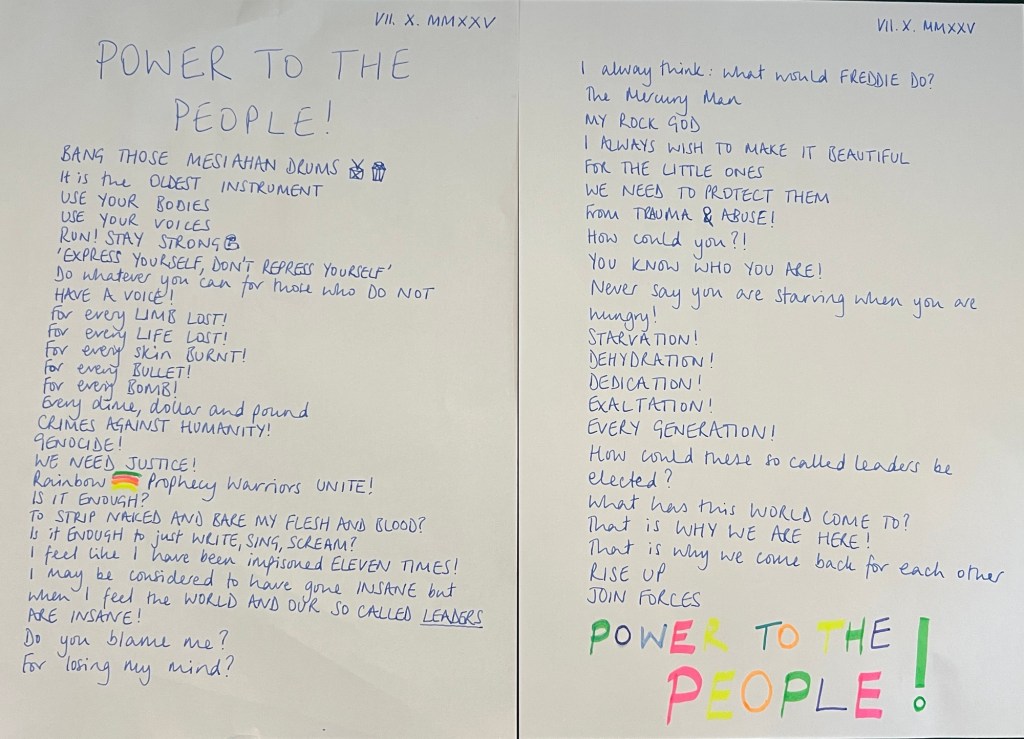 VII. X. MMXXV
POWER TO THE
PEOPLE!
BANG THOSE MESIAHAN DRUMS
It is the OLDEST INSTRUMENT
USE YOUR BODIES
USE YOUR VOICES
RUN! STAY STRONG
'EXPRESS YOURSELF, DON'T REPRESS YOURSELF'
Do whatever you can for those who DO NOT
HAVE A VOICE!
For every LIMB LOST!
For every LIFE LOST!
For every skin BURNT!
For every BULLET!
For every BOMB!
Every dime, dollar and pound
CRIMES AGAINST HUMANITY!
GENOCIDE!
WE NEED JUSTICE!
Rainbow Prophecy Warriors UNITE!
IS IT ENOUGH?
TO STRIP NAKED AND BARE MY FLESH AND BLOOD?
Is it ENOUGH to just WRITE, SING, SCREAM?
I feel like I have been impisoned ELEVEN TIMES!
I may be considered to have gone INSANE but
when I feel the WORLD AND OUR SO CALLED LEADERS
ARE INSANE!
Do you blame me?
For losing my mind?
VII. X. MMXXV
I alway think: what would FREDDIE DO?
The Mercury Man
MY ROCK GOD
I ALWAYS WISH TO MAKE IT BEAUTIFUL
FOR THE LITTLE ONES
WE NEED TO PROTECT THEM
From TRAUMA & ABUSE!
How could you?!
YOU KNOW WHO YOU ARE!
Never say you are starving when you are
hungry!
STARVATION!
DEHYDRATION!
DEDICATION!
EXALTATION!
EVERY GENERATION!
How could these so called leaders be
elected?
What has this WORLD COME TO?
That is WHY WE ARE HERE!
That is why we come back for each other
RISE UP
JOIN FORCES
POWER TO THE
PEOPLE!